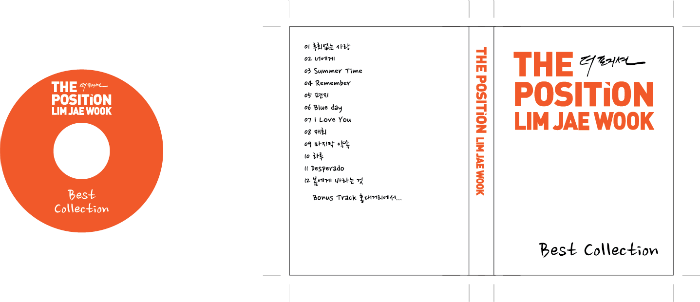 THE 더 포지션
POSITION
LIM JAE WOOK
Best
Collection
01 후회없는 사랑
02 너에게
03 Summer Time
04 Remember
05
06 Blue day
07 I Love You
08 재회
09 마지막 약속
10 하루
11 Desperado
12 봄에게 바라는 것
Bonus Track 홍대거리에서...
THE POSITION LIM JAE WOOK
THE 더 포지션
POSITION
LIM JAE WOOK
Best Collection